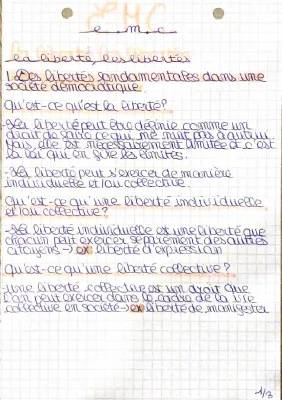 e.m.c
La liberté, les libertés
1. Des libertés fondamentales dans une
société démocratique
Qu'est-ce qu'est la liberté?
-La liberté peut être définie comme un
droit de faire ce qui me nuit pas à autrui
Mais, elle est nécessairement limitée et c'est
la loi qui en fixe les limites.
-La liberté peut s'exercer de manière
individuelle et/ou collective.
Qu'est-ce qu'une liberté individuelle
et/ou collective?
-La liberté individuelle est une liberté que
chacun peut exercer séparément des autres
citoyens → ex liberté d'expression
Qu'est-ce qu'une liberté collective?
-Une liberté collective est un droit que
l'on peut exercer dans le cadre de la vie
collective en société → ex liberté de manifester
1/3